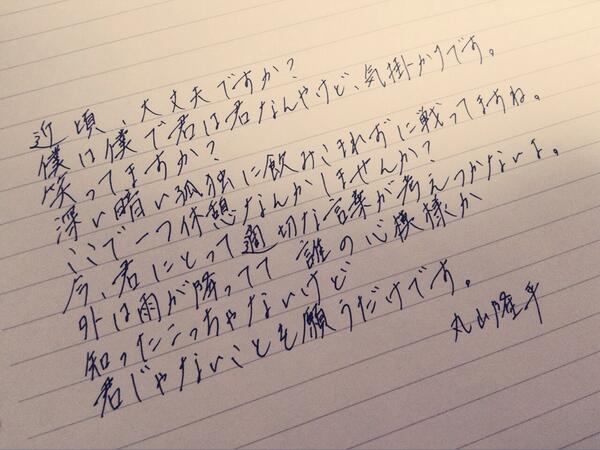 近頃、大丈夫ですか?
僕は僕で君は君なんやけど、気掛かりです。
笑ってますか?
深い暗い孤独に飲みこまれずに戦ってますね。
ここで一つ休憩なんかしませんか?
今、君にとって適切な言葉が考えつかないよ。
外は雨が降ってて 誰の心模様か
知ったこっちゃないけど
君じゃないことを願うだけです。
丸山隆平